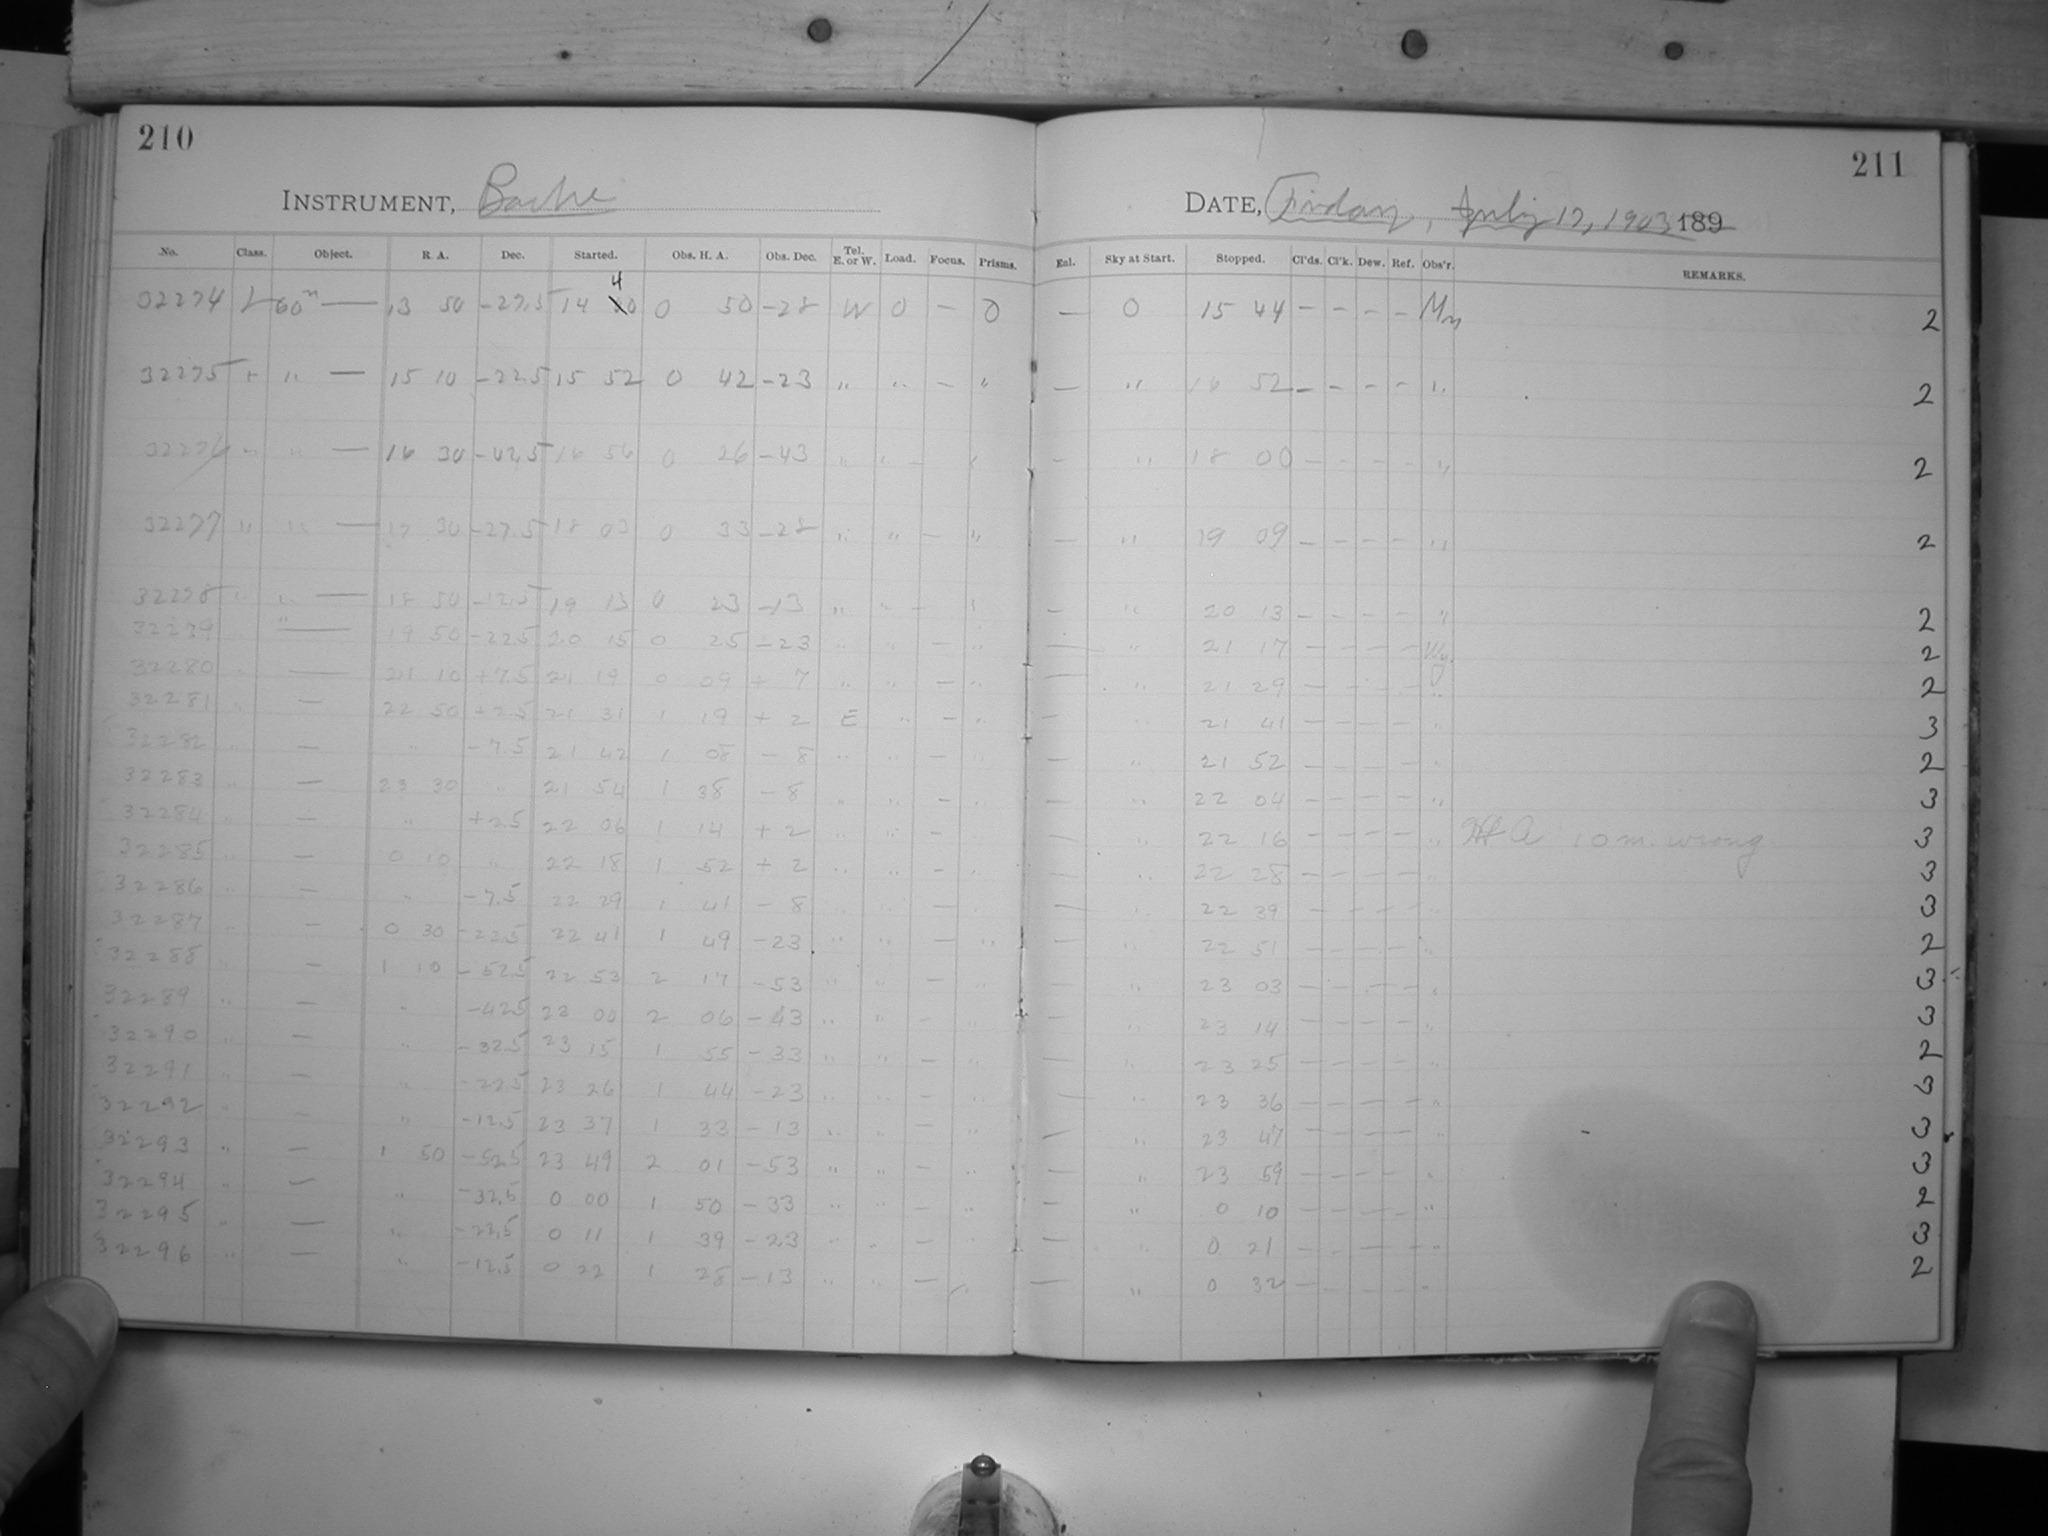 210
INSTRUMENT, Bache
No. Class. Object. R. A. Dec. Started. Obs. H. A. Obs. Dec. Tel. E. or W. Load. Focus. Prisms.
32274 L 60m — 13 50 -27.5 14 40 0 50 -28 W 0 — 0
32275 + " — 15 10 -22.5 15 52 0 42 -23 " " — "
32276 " " — 16 30 -42.5 16 56 0 26 -43 " " — "
32277 " " — 17 30 -27.5 18 03 0 33 -28 " " — "
32278 " " — 18 50 -12.5 19 13 0 23 -13 " " — "
32279 " — 19 50 -22.5 20 15 0 25 -23 " " — "
32280 " — 21 10 +7.5 21 19 0 09 + 7 " " — "
32281 " — 22 50 +2.5 21 31 1 19 + 2 E " — "
32282 " — " -7.5 21 42 1 08 - 8 " " — "
32283 " — 23 30 " 21 54 1 38 - 8 " " — "
32284 " — " +2.5 22 06 1 14 + 2 " " — "
32285 " — 0 10 " 22 18 1 52 + 2 " " — "
32286 " — " -7.5 22 29 1 41 - 8 " " — "
32287 " — 0 30 -22.5 22 41 1 49 -23 " " — "
32288 " — 1 10 -52.5 22 53 2 17 -53 " " — "
32289 " — " -42.5 23 2 06 -43 " " — "
32290 " — " -32.5 23 15 1 55 -33 " " — "
32291 " — " -22.5 23 26 1 44 -23 " " — "
32292 " — " -12.5 23 37 1 33 -13 " " — "
32293 " — 1 50 -52.5 23 49 2 01 -53 " " — "
32294 " — " -32.5 0 00 1 50 -33 " " — "
32295 " — " -22.5 0 11 1 39 -23 " " — "
32296 " — " -12.5 0 22 1 28 -13 " " —
211
DATE, Friday, July 17, 1903 189
Enl. Sky at Start. Stopped. Cl'ds. Cl'k. Dew. Ref. Obs'r. REMARKS.
— 0 15 44 — — — — 2
— " 16 52 — — — — " 2
— " 18 00 — — — — " 2
— " 19 09 — — — — " 2
— " 20 13 — — — — " 2
— " 21 17 — — — — 2
— " 21 29 — — — — " 2
— " 21 41 — — — — " 3
— " 21 52 — — — — " 2
— " 22 04 — — — — " 3
— " 22 16 — — — — " A 10 m. wrong 3
— " 22 28 — — — — " 3
— " 22 39 — — — — " 3
— " 22 51 — — — — " 2
— " 23 03 — — — — " 3
— " 23 14 — — — — " 3
— " 23 25 — — — — " 2
— " 23 36 — — — — " 3
— " 23 47 — — — — " 3
— " 23 59 — — — — " 3
— " 0 10 — — — — " 2
— " 0 21 — — — — " 3
— " 0 32 — — — — " 2